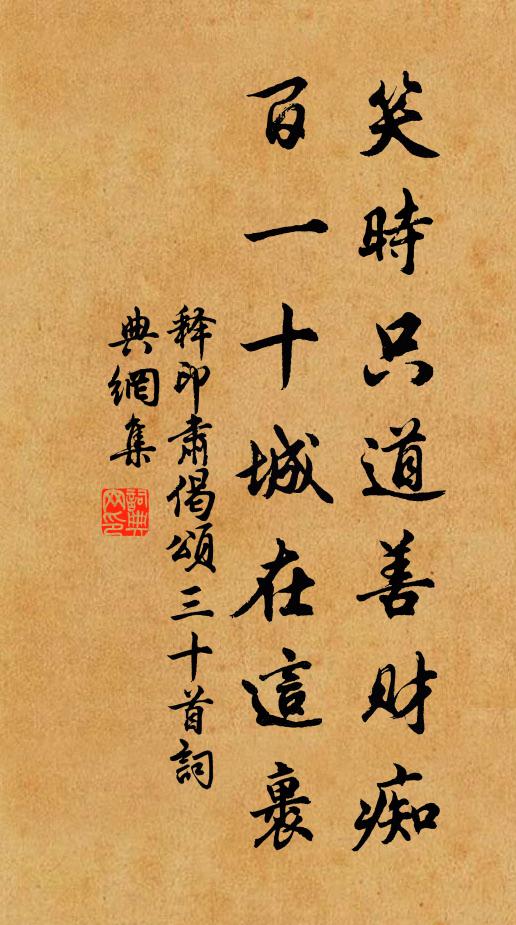 笑時只道善财痴
百一十城在這裹
释印肅偈頌三十首詞
典網集
詞典
网印